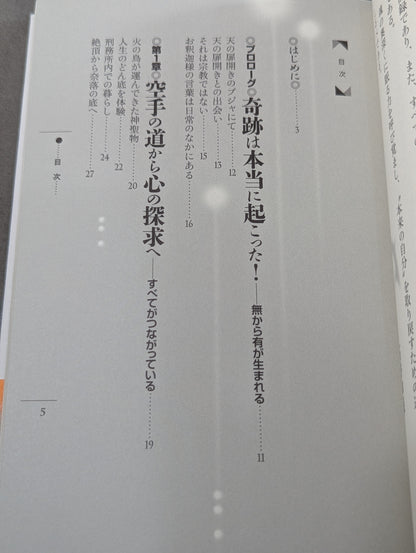 目次
◎はじめに◎……3
◎プロローグ◎ 奇跡は本当に起こった！──無から有が生まれる……11
天の扉開きのプジャにて……12
天の扉開きとの出会い……13
それは宗教ではない……15
お釈迦様の言葉は日常のなかにある……16
◎第1章◎ 空手の道から心の探求へ──すべてがつながっている……19
火の鳥が運んできた神聖物……20
人生のどん底を体験……22
刑務所内での暮らし……24
絶頂から奈落の底へ……27
●……目次……
5